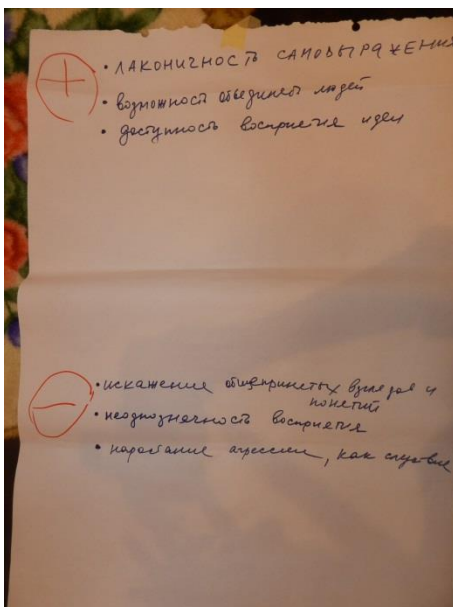 +
• ЛАКОНИЧНОСТЬ САМОВЫРАЖЕНИЯ
• возможность объединеть людей
• доступность восприетия идеи
−
• искажение общепринетых взглядов и
понетий
• неоднозначность восприетия
• нарастание агрессии, как следствие